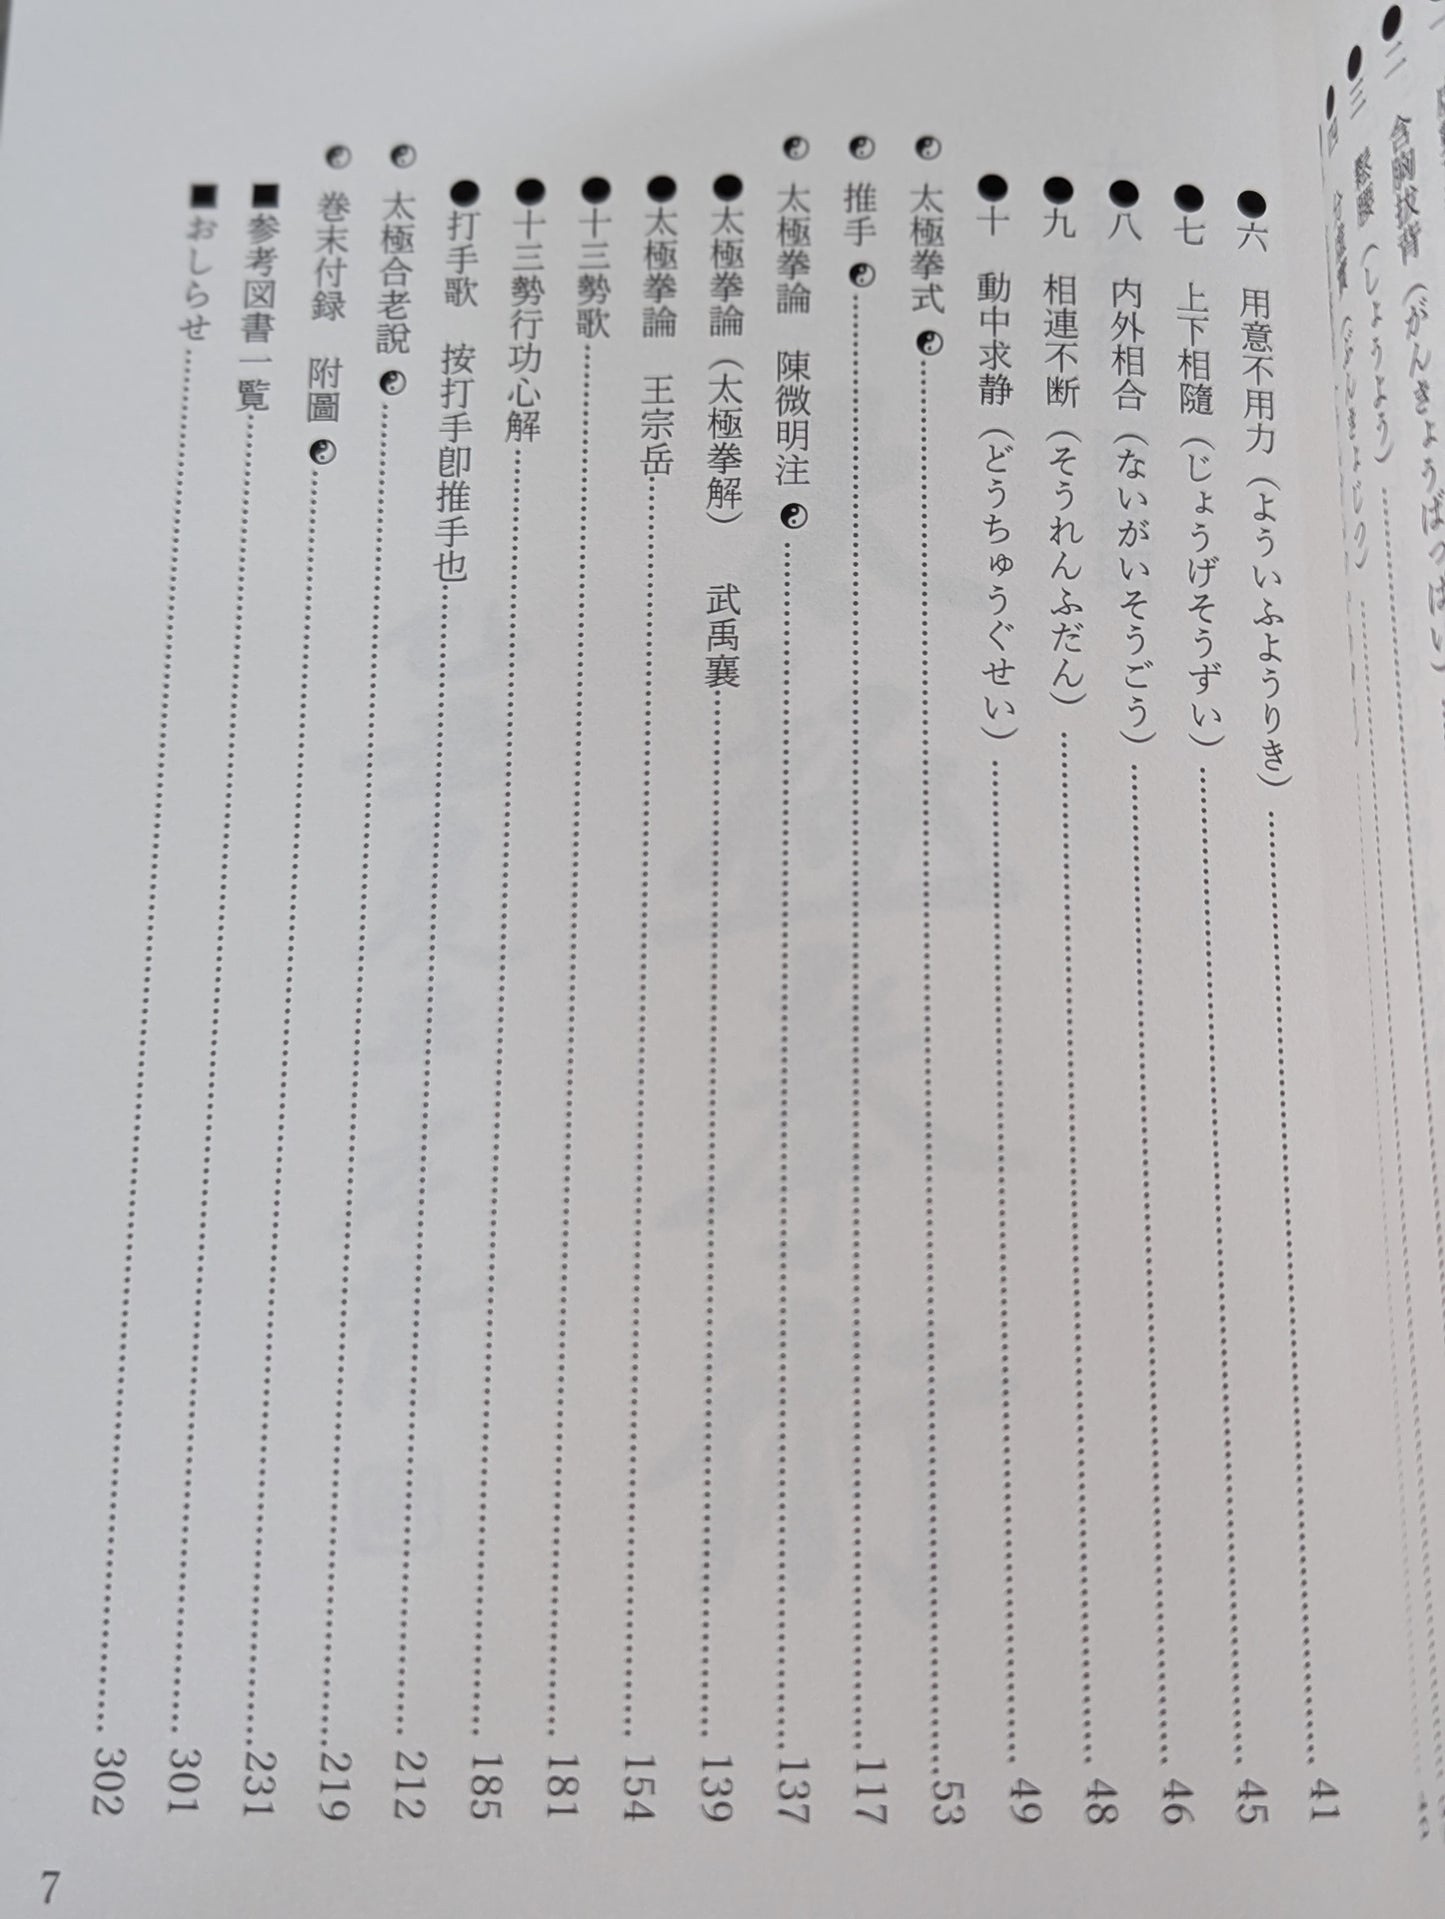 ●二 含胸抜背（がんきょうばっぱい）
●三 鬆腰（しょうよう）
●六 用意不用力（よういふようりき）…………41
●七 上下相隨（じょうげそうずい）…………45
●八 内外相合（ないがいそうごう）…………46
●九 相連不断（そうれんふだん）…………48
●十 動中求静（どうちゅうぐせい）…………49
☯ 太極拳式 ☯…………53
☯ 推手 ☯…………117
☯ 太極拳論 陳微明注 ☯…………137
●太極拳論（太極拳解） 武禹襄…………139
●太極拳論 王宗岳…………154
●十三勢歌…………181
●十三勢行功心解…………185
●打手歌 按打手卽推手也…………212
☯ 太極合老説 ☯…………219
☯ 巻末付録 附圖 ☯…………231
■参考図書一覧…………301
■おしらせ…………302
7